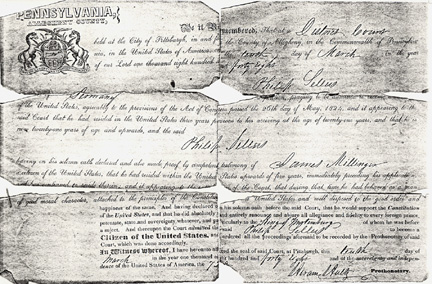 PENNSYLVANIA,
ALLEGHENY COUNTY,
Be It Remembered, That at a District Court
held at the City of Pittsburgh, in and for the County of Allegheny, in the Commonwealth of Pennsylvania
in the United States of America day of March in the year
of our Lord one thousand eight hundred forty eight
Philip Sellers
a native of Germany
of the United States, agreeably to the provisions of the Act of Congress passed the 26th day of May, 1824, and it appearing to the
said Court that he had resided in the United States three years previous to his arriving at the age of twenty-one years, and that he is
now twenty-one years of age and upwards, and the said
Philip Sellers
having on his solemn oath declared and also made proof by competent testimony of James
a citizen of the United States, that he had resided within the United States upwards of five years, immediately preceding his
of good moral character, attached to the principles of the Constitution of the United States and well disposed to the good order and
happiness of the same: And having declared on his solemn oath before the said Court, that he would support the Constitution
of the United States, and that he did absolutely and entirely renounce and abjure all allegiance and fidelity to every foreign prince,
potentate, state and sovereignty whatever, and particularly to the King of of whom he was before
a subject. And thereupon the Court admitted the said Philip Sellers to become a
Citizen of the United States, and ordered all the proceedings aforesaid to be recorded by the Prothonotary of said
Court, which was done accordingly.
In Witness whereof, I have hereunto the seal of said Court, at Pittsburgh, this tenth day of
March in the year one thousand eight hundred forty eight and of the sovereignty and independence
of the United States of America, the
Hiram Hultz Prothonotary.